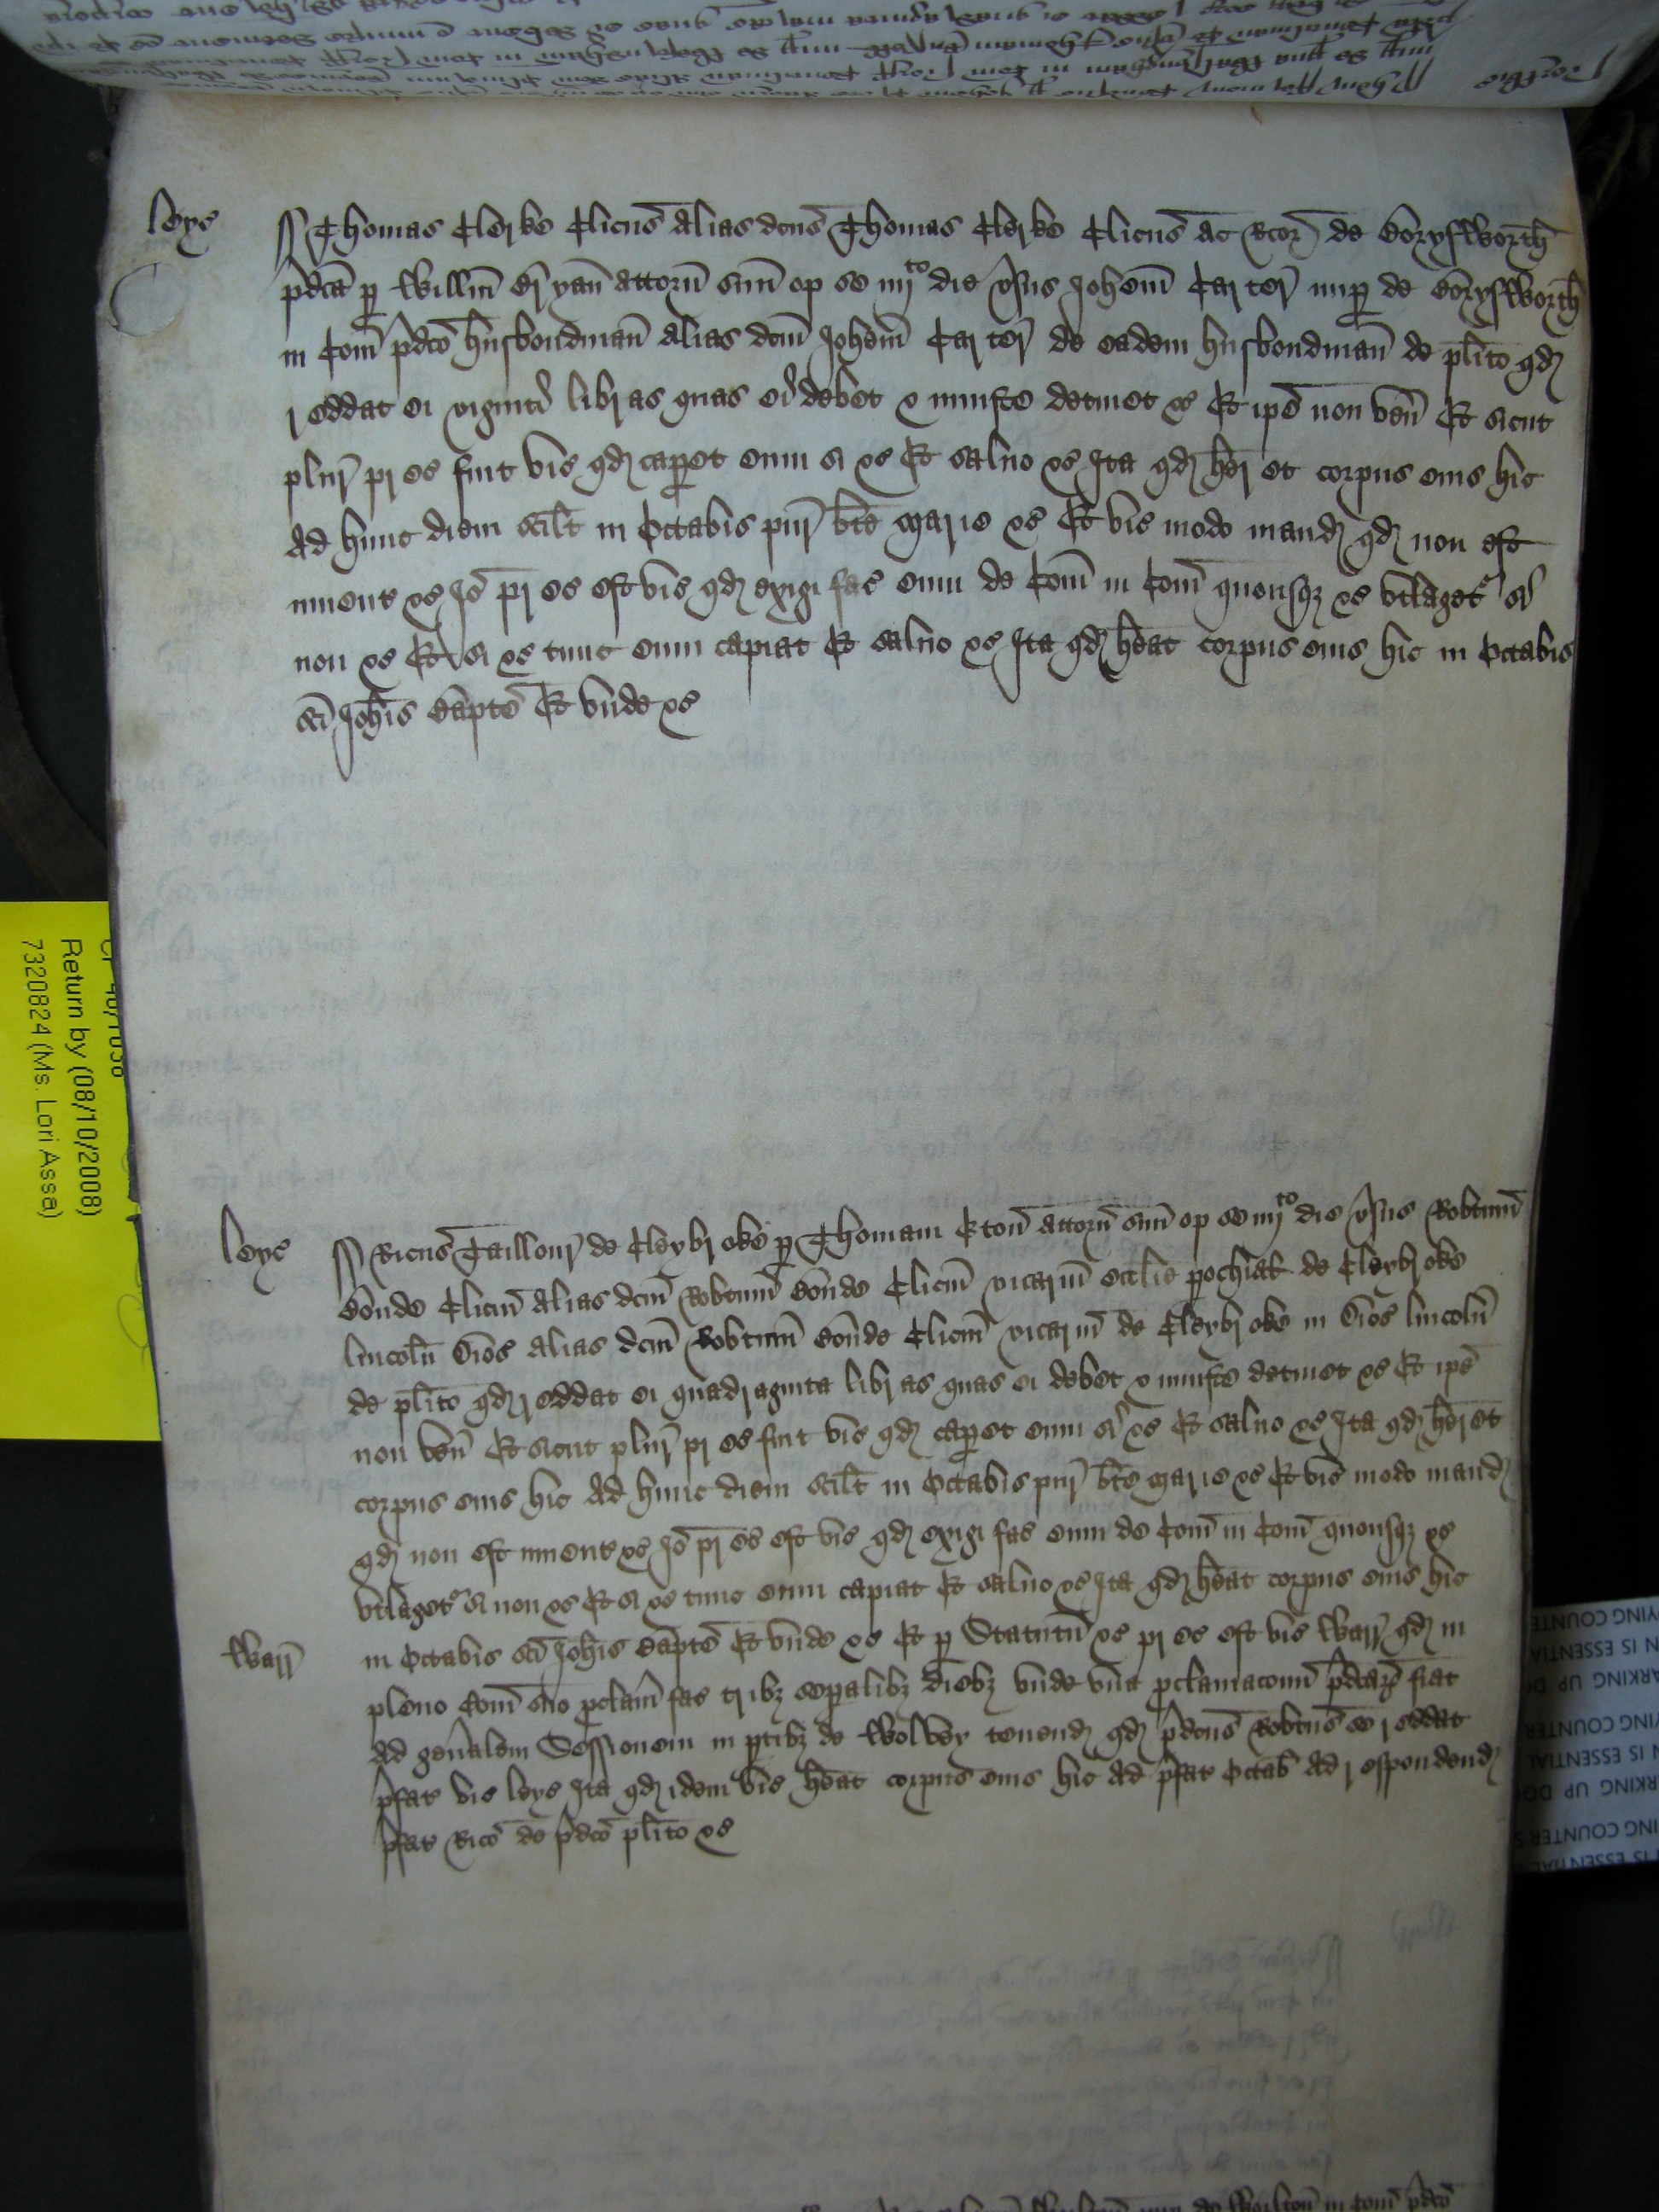 leyc̃
Thomas Clerke Clicus̃ alias dcus̃ Thomas Clerke Clicus̃ ac Rcor̃ de Boryſworth̃
p̃dca p̱ Willm̃ Bryan̄ attorñ suũ op se iiij^to die v̉sus Joheñ Carter nup̱ de Boryſworth̃
in Com̃ p̃dcõ husbondman̄ alias dcm̃ Johem̃ Carter de eadem husbondman̄ de pl̃ito qd̉
reddat ei viginti libras quas ei debet & iniuste detinet &c Et ip̃e non veñ Et sicut
plur̃ pr̃ es fuit vic̃ qd̉ cap̱et eum si &c Et saluo &c Ita qd̉ her̃et corpus eius hic
ad hunc diem scil̃t in Octabis pur̃ b̃te marie &c Et vic̃ modo mand̉ qd̉ non est
inuent̉ &c Jõ pr̃ es est vic̃ qd̉ exigi fac̃ eum de Com̃ in Com̃ quousq̉ &c vtlaget^r si
non &c Et si &c tunc eum capiat Et saluo &c Ita qd̉ h̃eat corpus eius hic in Octabis
sc̃i Joh̃is bap̃te Et vñde &c
leyc̃
Ricus̃ Taillour de Cleybroke p̱ Thomam Eton̄ attorñ suũ op se iiij^to die v̉sus Robtum̃
Bonde Clicm̃ alias dcm̃ Robtum̃ Bonde Clicm̃ vicariũ ecclie p̱ochial̃ de Cleybroke
lincolñ dioc̃ alias dcm̃ Robtum̃ Bonde Clicm̃ vicariũ de Cleybroke in dioc̃ lincolñ
de pl̃ito qd̉ reddat ei quadraginta libras quas ei debet & iniuste detinet &c Et ip̃e
non veñ Et sicut plur̃ pr̃ es fuit vic̃ qd̉ cap̱et eum si &c Et saluo &c Ita qd̉ her̃et
corpus eius hic ad hunc diem scil̃t in Octabis pur̃ b̃te marie &c Et vic̃ modo mand̉
qd̉ non est inuent̉ &c Jõ pr̃ es est vic̃ qd̉ exigi fac̃ eum de Com̃ in Com̃ quousq̉ &c
vtlaget^r si non &c Et si &c tunc eum capiat Et saluo &c Ita qd̉ h̃eat corpus eius hic
in Octabis sc̃i Joh̃is bap̃te Et vñde &c Et p̱ Statutũ &c pr̃ es est vic̃ Warr̃ qd̉ in
Warr̃
pleno Com̃ suo p̱clam̃ fac̃ tribȝ sep̱alibȝ diebȝ vnde vna p̱clamaconũ p̃dcar̃ fiat
ad gen̉alem Sessionem in p̱tibȝ de Wolvey tenend̉ qd̉ p̃dcus̃ Robtus̃ se reddat
p̃fat̉ vic̃ leyc̃ Ita qd̉ idem vic̃ h̃eat corpus eius hic ad p̃fat̉ Octab̃ ad respondend̉
p̃fat̉ Rico de p̃dcõ pl̃ito &c
Return by (08/10/2008)
7320824 (Ms. Lori Assa)